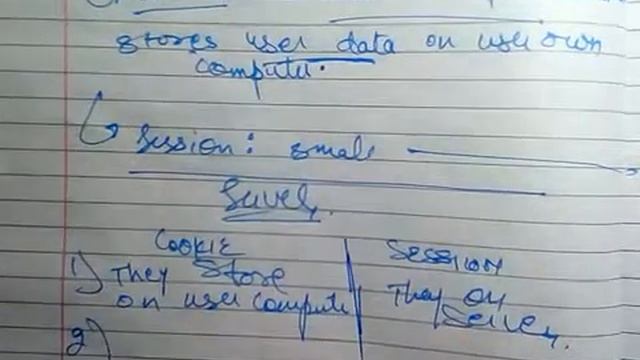 stores user data on user own
computer.
Session: small
Server.
COOKIE SESSION
1) They Store They on
on user computer Server.
2)